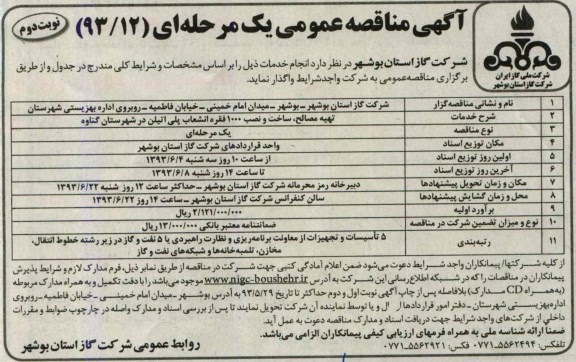 آگهی مناقصه عمومی یک مرحله‌ای (۹۳/۱۲)
نوبت دوم
شرکت ملی گاز ایران
شرکت گاز استان بوشهر
شرکت گاز استان بوشهر در نظر دارد انجام خدمات ذیل را بر اساس مشخصات و شرایط کلی مندرج در جدول و از طریق
برگزاری مناقصه عمومی به شرکت واجد شرایط واگذار نماید.
۱ نام و نشانی مناقصه‌گزار شرکت گاز استان بوشهر - بوشهر - میدان امام خمینی - خیابان فاطمیه - روبروی اداره بهزیستی شهرستان
۲ شرح خدمات تهیه مصالح، ساخت و نصب ۱۰۰۰ فقره انشعاب پلی اتیلن در شهرستان گناوه
۳ نوع مناقصه یک مرحله‌ای
۴ مکان توزیع اسناد واحد قراردادهای شرکت گاز استان بوشهر
۵ اولین روز توزیع اسناد از ساعت ۱۰ روز سه شنبه ۱۳۹۳/۶/۴
۶ آخرین روز توزیع اسناد تا ساعت ۱۴ روز شنبه ۱۳۹۳/۶/۸
۷ مکان و زمان تحویل پیشنهادها دبیرخانه رمز محرمانه شرکت گاز استان بوشهر - حداکثر ساعت ۱۲ روز شنبه ۱۳۹۳/۶/۲۲
۸ محل و زمان گشایش پیشنهادها سالن کنفرانس شرکت گاز استان بوشهر - ساعت ۱۴ روز ۱۳۹۳/۶/۲۲
۹ برآورد اولیه ۲/۱۲۱/۰۰۰/۰۰۰ ریال
۱۰ نوع و میزان تضمین شرکت در مناقصه ضمانتنامه معتبر بانکی ۱۳/۰۰۰/۰۰۰ ریال
۱۱ رتبه‌بندی ۵ تأسیسات و تجهیزات از معاونت برنامه‌ریزی و نظارت راهبردی یا ۵ نفت و گاز در زیر رشته خطوط انتقال،
مخازن، تلمبه‌خانه‌ها و شبکه‌های نفت و گاز
از کلیه شرکتها/پیمانکاران واجد شرایط دعوت می‌شود ضمن اعلام آمادگی کتبی جهت شرکت در مناقصه از طریق نمابر ذیل، فرم مدارک لازم و شرایط پذیرش
پیمانکاران در مناقصات را که در شبکه اطلاع‌رسانی این شرکت به آدرس www.nigc-boushehr.ir موجود می‌باشد را با دقت تکمیل و به همراه مدارک مربوطه
(به‌همراه CD مدارک) بلافاصله پس از چاپ آگهی نوبت اول و دوم حداکثر تا تاریخ ۹۳/۵/۲۹ به آدرس بوشهر - میدان امام خمینی - خیابان فاطمیه - روبروی
اداره بهزیستی شهرستان - دفتر امور قراردادها ارسال و یا توسط نماینده آن شرکت تحویل نمایند تا پس از بررسی اسناد و مدارک واصله در چارچوب ضوابط و مقررات
داخلی از شرکت‌های واجد شرایط جهت دریافت اسناد و مدارک مناقصه دعوت به عمل آید.
ضمناً ارائه شناسه ملی به همراه فرمهای ارزیابی کیفی پیمانکاران الزامی می‌باشد.
تلفکس: ۵۵۶۲۴۹۴-۰۷۷۱ تلفن: ۵۵۶۲۹۲۱-۰۷۷۱
روابط عمومی شرکت گاز استان بوشهر